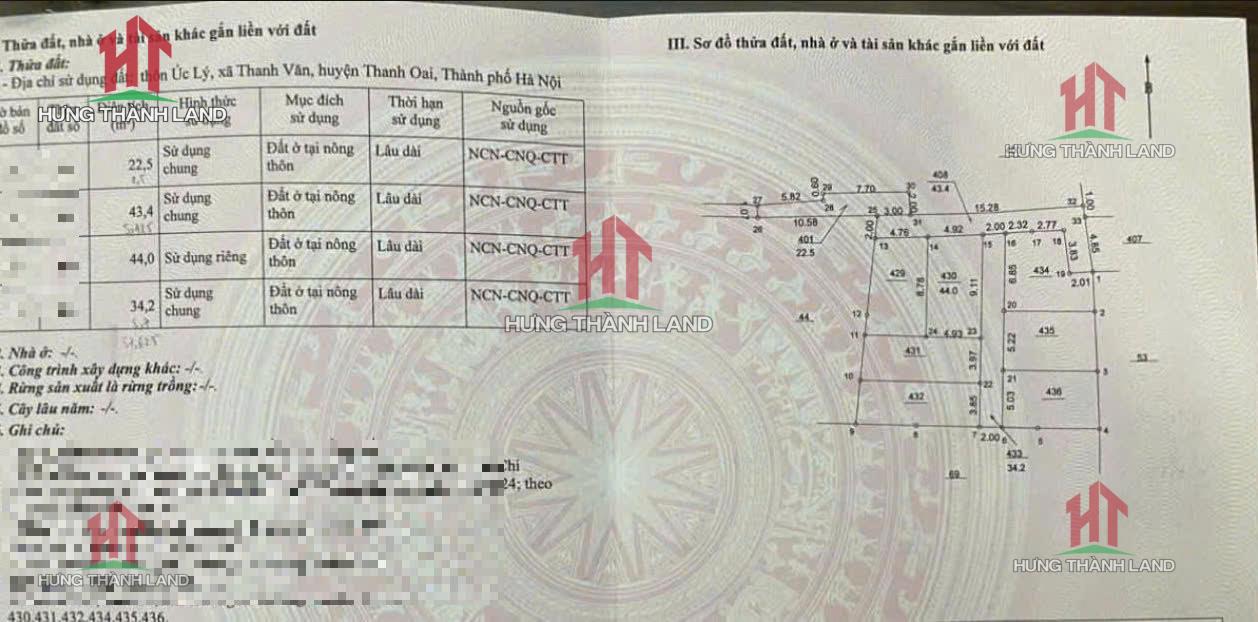 Thửa đất, nhà ở và tài sản khác gắn liền với đất
. Thửa đất:
- Địa chỉ sử dụng đất: thôn Úc Lý, xã Thanh Văn, huyện Thanh Oai, Thành phố Hà Nội
Hình thức Mục đích sử dụng Thời hạn sử dụng Nguồn gốc sử dụng
22,5 Sử dụng chung Đất ở tại nông thôn Lâu dài NCN-CNQ-CTT
43,4 Sử dụng chung Đất ở tại nông thôn Lâu dài NCN-CNQ-CTT
44,0 Sử dụng riêng Đất ở tại nông thôn Lâu dài NCN-CNQ-CTT
34,2 Sử dụng chung Đất ở tại nông thôn Lâu dài NCN-CNQ-CTT
. Nhà ở: -/-.
. Công trình xây dựng khác: -/-.
. Rừng sản xuất là rừng trồng: -/-.
. Cây lâu năm: -/-.
. Ghi chú:
24; theo
430,431,432,434,435,436.
III. Sơ đồ thửa đất, nhà ở và tài sản khác gắn liền với đất
B
408
43.4
27 5.82 0.60 29 7.70 30
1.07 26 10.58 28 25 3.00 2.00 31 15.28 32 1.00 33
401
22.5
2.00 4.76 4.92 2.00 2.32 2.77
13 14 15 16 17 18 3.83 4.85 407
429 430 434 19 1
8.76 44.0 9.11 6.85 2.01
44 12 20 2
11 24 4.93 23 435
431 3.97 5.22 53
10 22 21 3
432 3.85 5.03 436
9 8 7 2.00 6 5 4
433
34.2
69
HƯNG THÀNH LAND
HƯNG THÀNH LAND
HƯNG THÀNH LAND
HƯNG THÀNH LAND
HƯNG THÀNH LAND